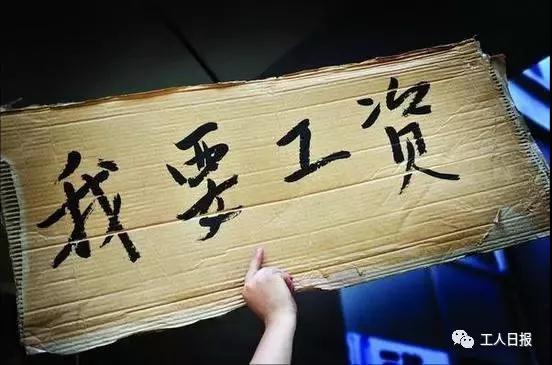 我要工资
工人日报